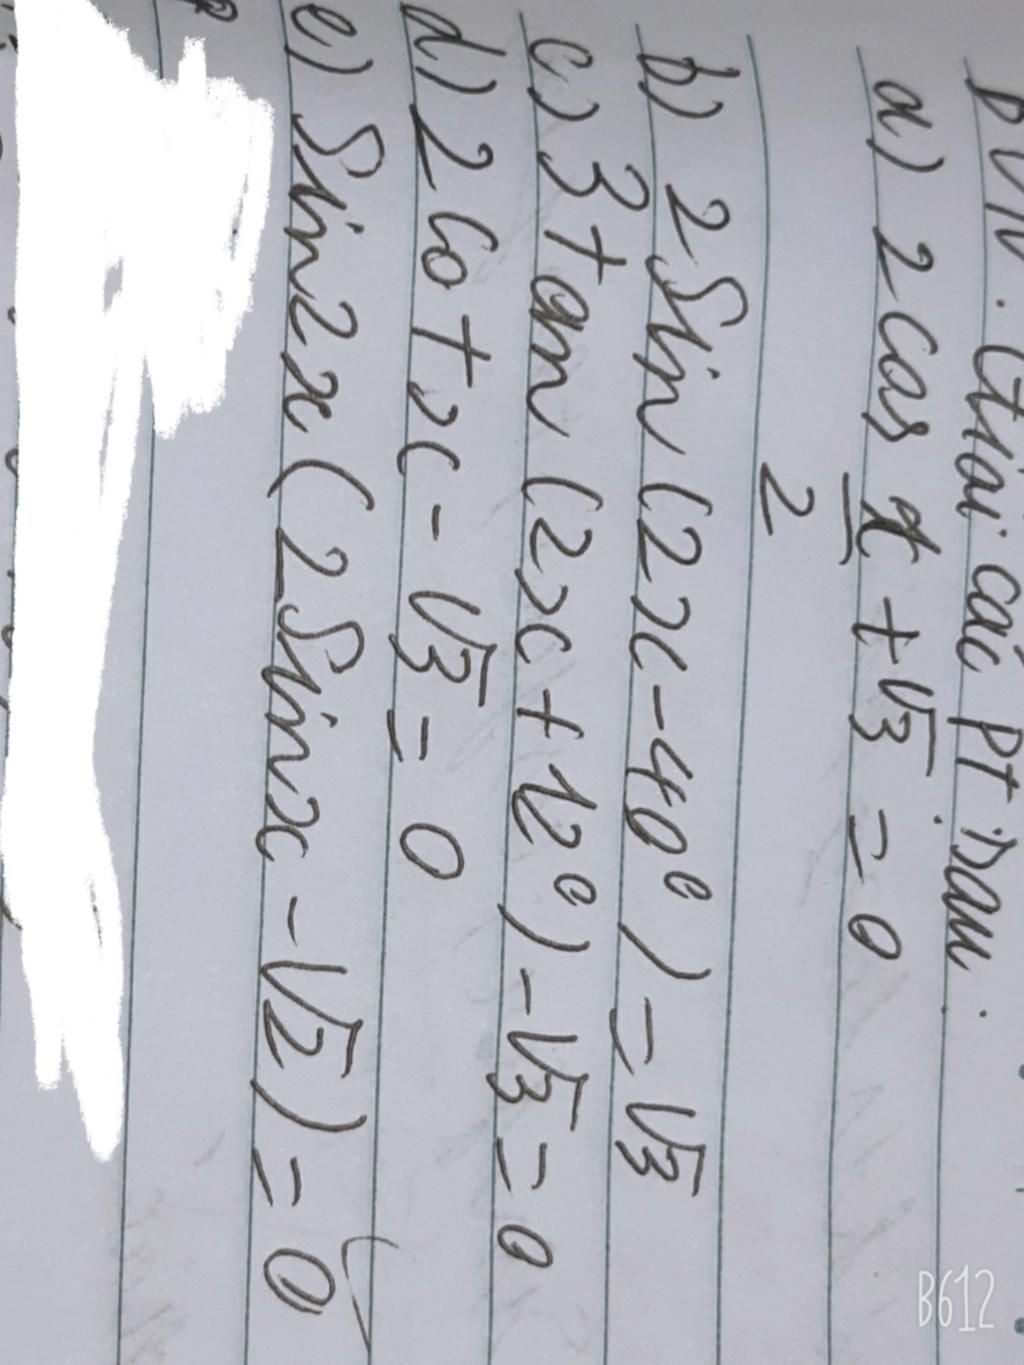 Giải các pt sau:
a) 2 cos x/2 + √3 = 0
b) 2 Sin (2x - 40°) = √3
c) 3 tan (2x + 12°) - √3 = 0
d) 2 cot x - √3 = 0
e) Sin2x (2 Sinx - √2) = 0
B612